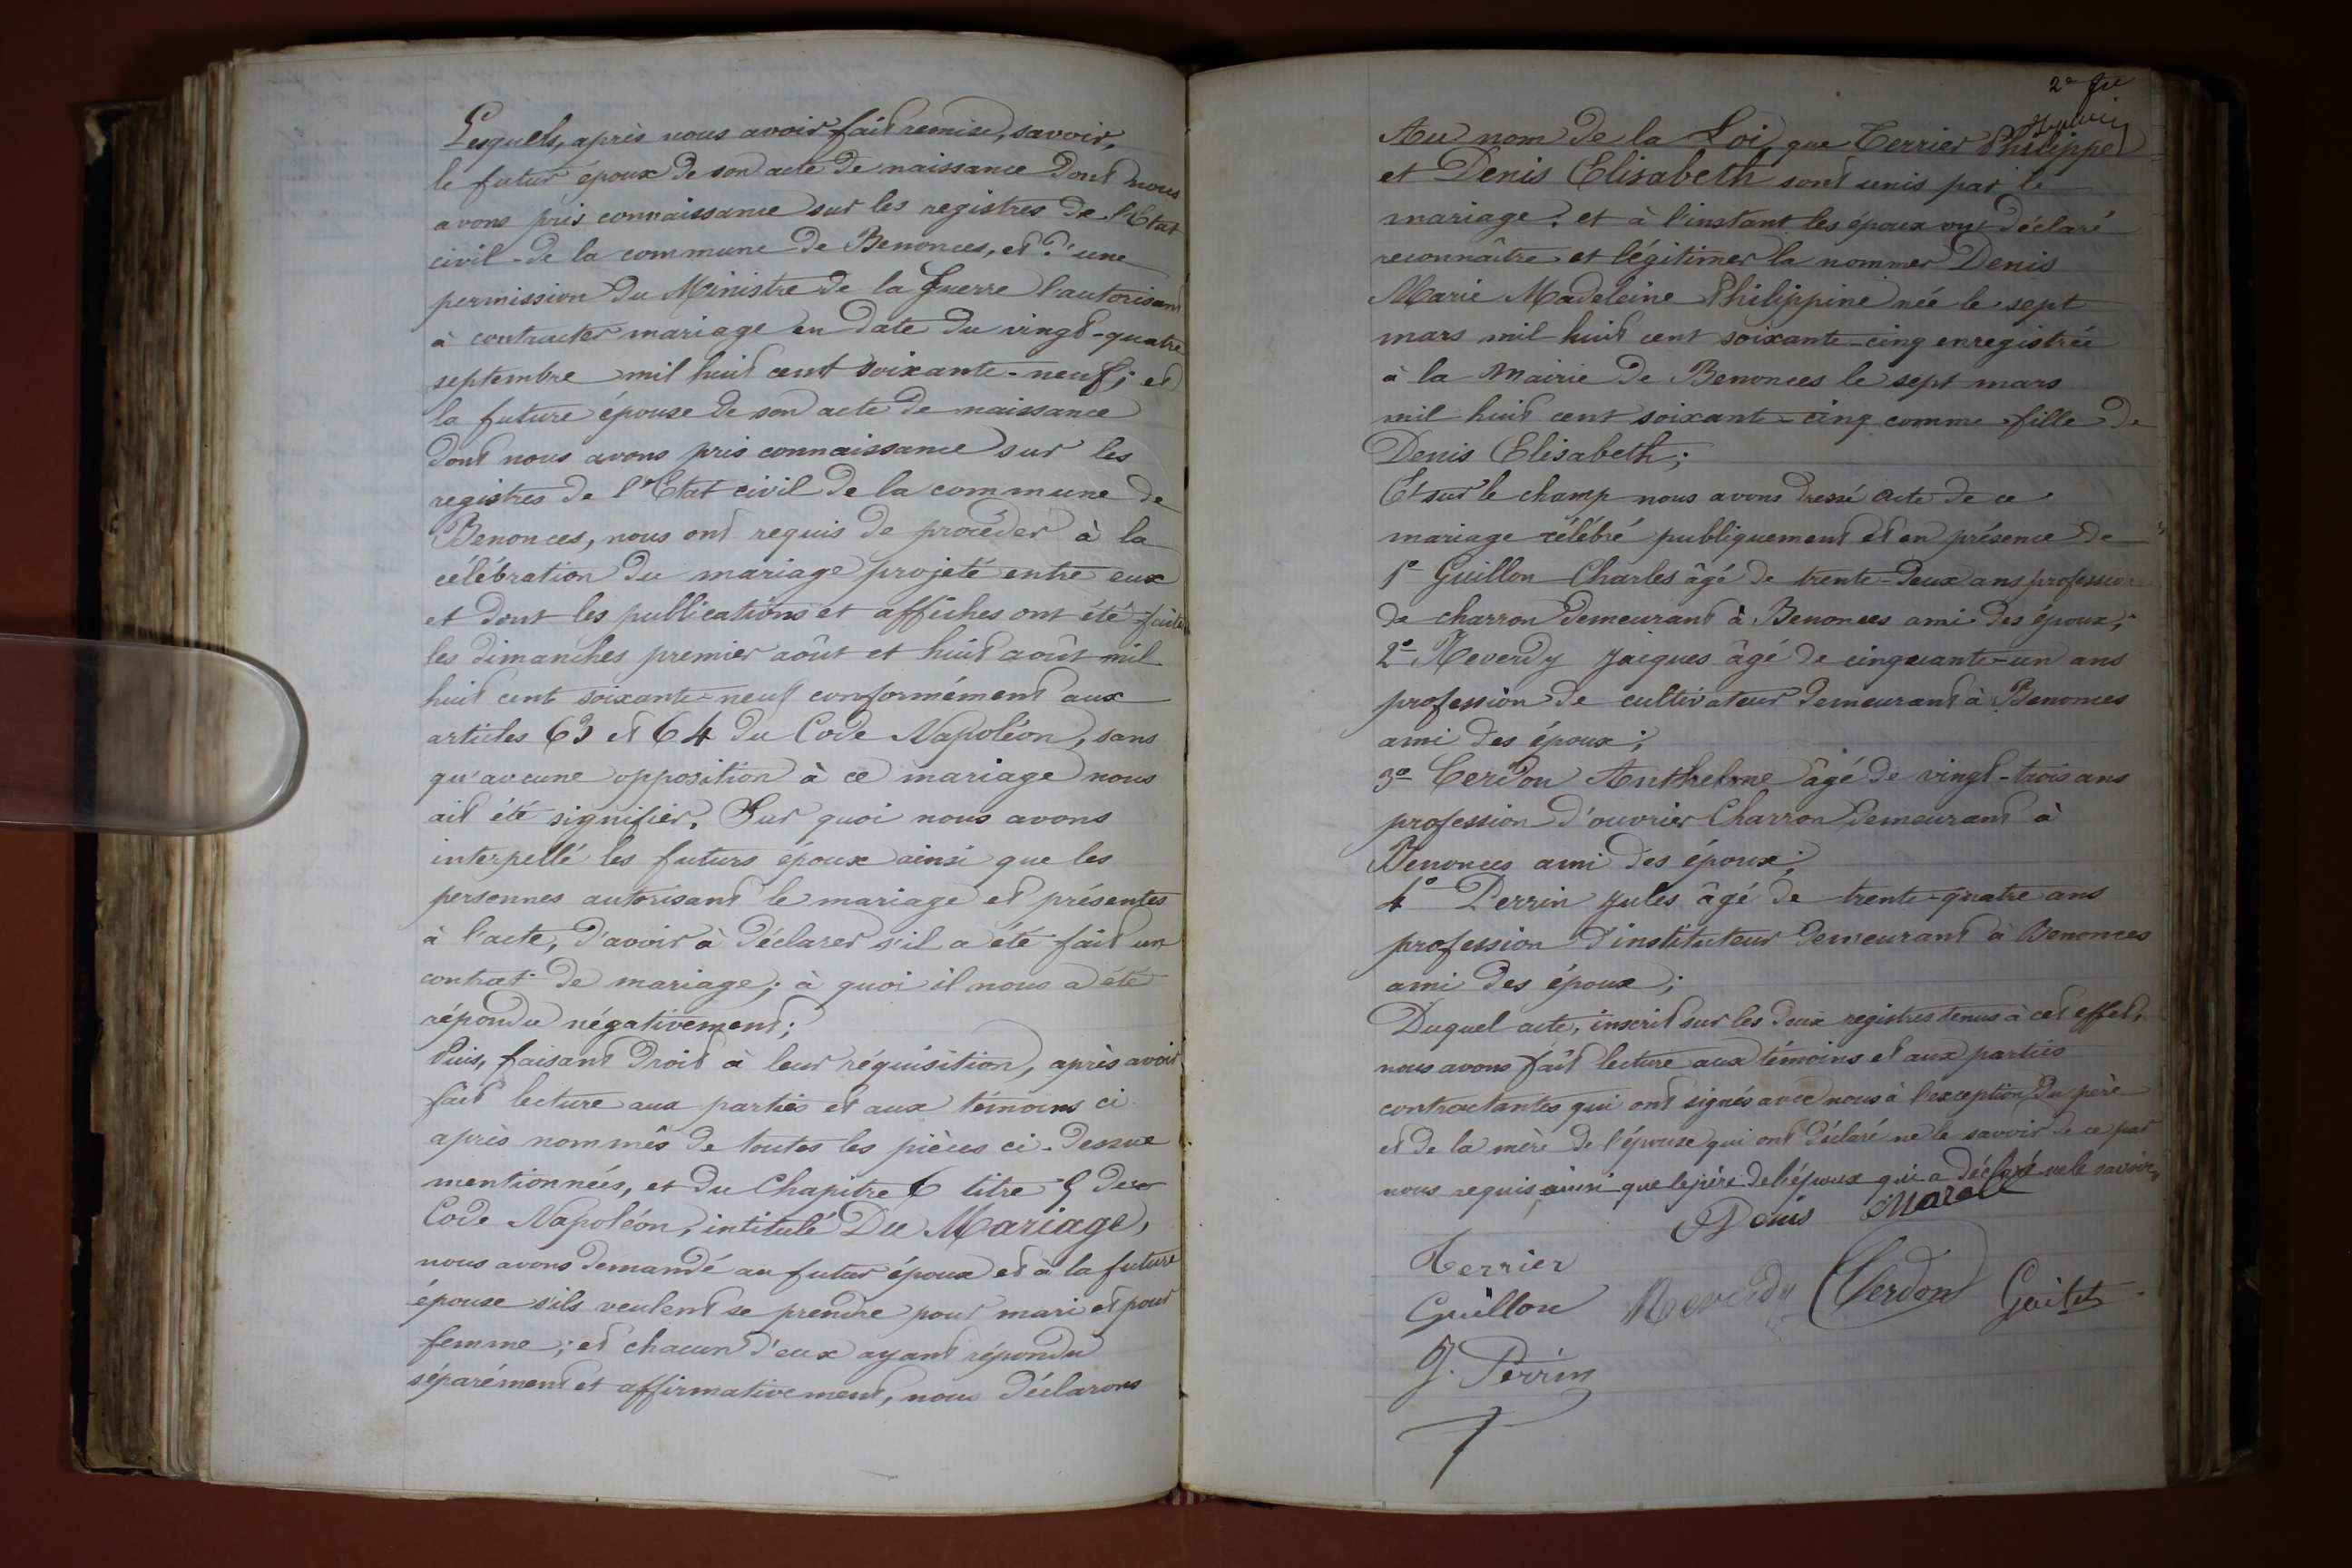 Lesquels, après nous avoir fait remise, savoir,
le futur époux de son acte de naissance dont nous
avons pris connaissance sur les registres de l'Etat
civil de la commune de Benonces, et d'une
permission du Ministre de la Guerre l'autorisant
à contracter mariage en date du vingt-quatre
septembre mil huit cent soixante-neuf; et
la future épouse de son acte de naissance
dont nous avons pris connaissance sur les
registres de l'Etat civil de la commune de
Benonces, nous ont requis de procéder à la
célébration du mariage projeté entre eux
et dont les publications et affiches ont été faites
les dimanches premier août et huit août mil
huit cent soixante-neuf conformément aux
articles 63 et 64 du Code Napoléon, sans
qu'aucune opposition à ce mariage nous
ait été signifier. Sur quoi nous avons
interpellé les futurs époux ainsi que les
personnes autorisant le mariage et présentes
à l'acte, d'avoir à déclarer s'il a été fait un
contrat de mariage; à quoi il nous a été
répondu négativement;
Puis, faisant droit à leur réquisition, après avoir
fait lecture aux parties et aux témoins ci
après nommés de toutes les pièces ci-dessus
mentionnées, et du Chapitre 6 titre 5 des
Code Napoléon, intitulé Du Mariage,
nous avons demandé au futur époux et à la future
épouse s'ils veulent se prendre pour mari et pour
femme; et chacun d'eux ayant répondu
séparément et affirmativement, nous déclarons
2e
Au nom de la Loi, que Terrier Philippe
et Denis Elisabeth sont unis par le
mariage. et à l'instant les époux ont déclaré
reconnaître et légitimer la nommer Denis
Marie Madeleine Philippine née le sept
mars mil huit cent soixante-cinq enregistrée
à la Mairie de Benonces le sept mars
mil huit cent soixante-cinq comme fille de
Denis Elisabeth;
Et sur le champ nous avons dressé acte de ce
mariage célébré publiquement et en présence de
1° Guillon Charles âgé de trente-deux ans profession
de charron demeurant à Benonces ami des époux;
2° Reverdy Jacques âgé de cinquante-un ans
profession de cultivateur demeurant à Benonces
ami des époux;
3° Cerdon Anthelme âgé de vingt-trois ans
profession d'ouvrier Charron demeurant à
Benonces ami des époux;
4° Perrin Jules âgé de trente-quatre ans
profession d'instituteur demeurant à Benonces
ami des époux;
Duquel acte, inscrit sur les deux registres tenus à cet effet,
nous avons fait lecture aux témoins et aux parties
contractantes qui ont signés avec nous à l'exception du père
et de la mère de l'épouse qui ont déclaré ne le savoir de ce par
nous requis, ainsi que le père de l'époux qui a déclaré ne le savoir,
Denis
Terrier
Guillon Reverdy Cerdon
J. Perrin